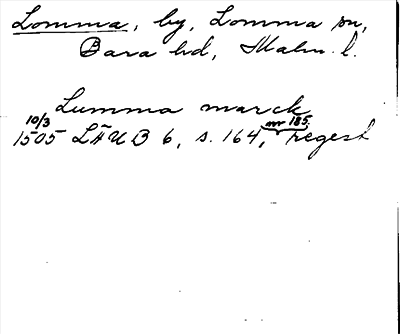 Lomma, by, Lomma sn,
Bara hd, Malm. l.
Lumma marck
10/3
1505 LÄUB 6, s. 164, nr 185, regest